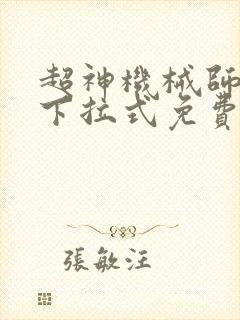 超神機械師
下拉式免費
張敏汪